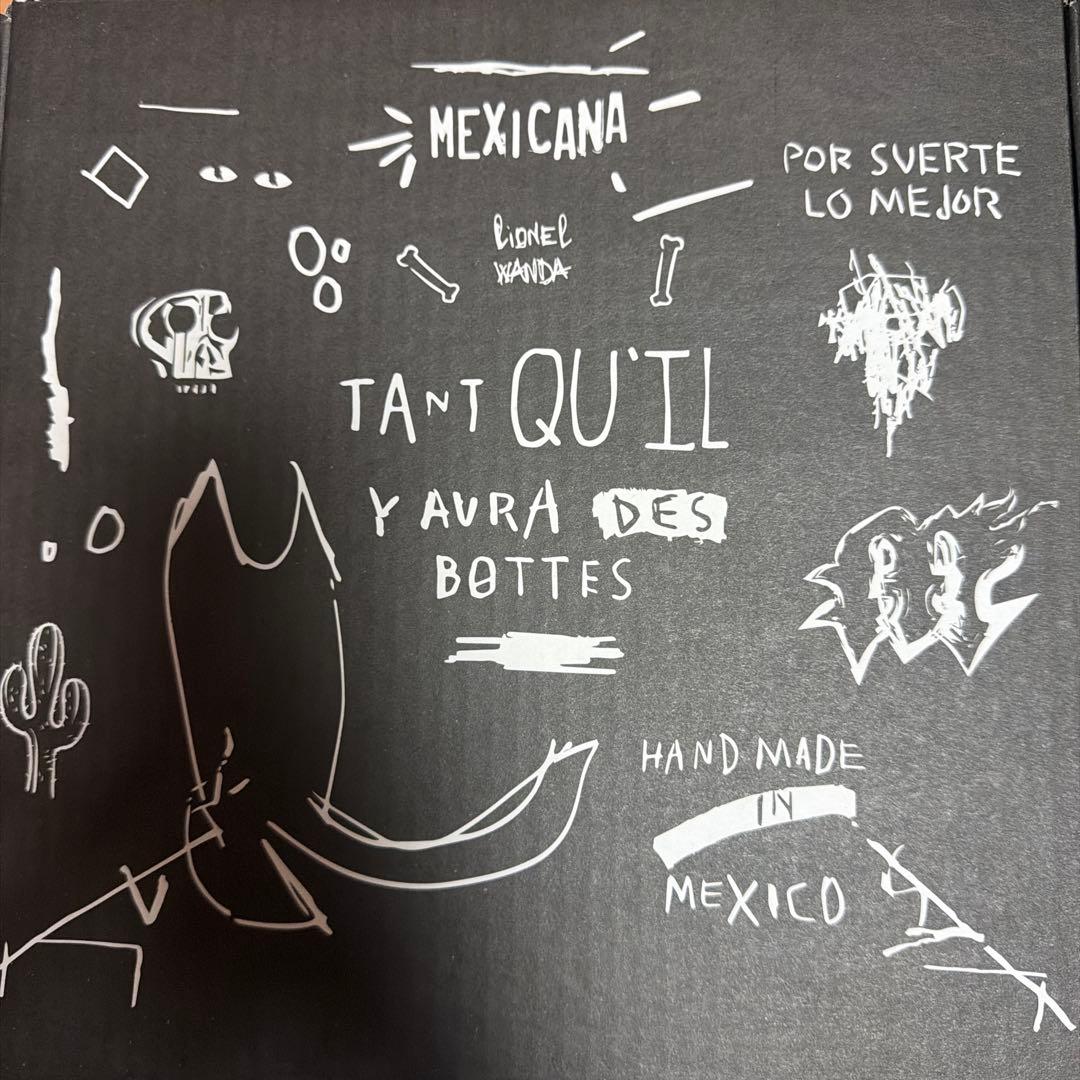 MEXICANA
POR SUERTE
LO MEJOR
LiONEL
WANDA
TANT QU'IL
Y AURA DES
BOTTES
HAND MADE
IN
MEXICO